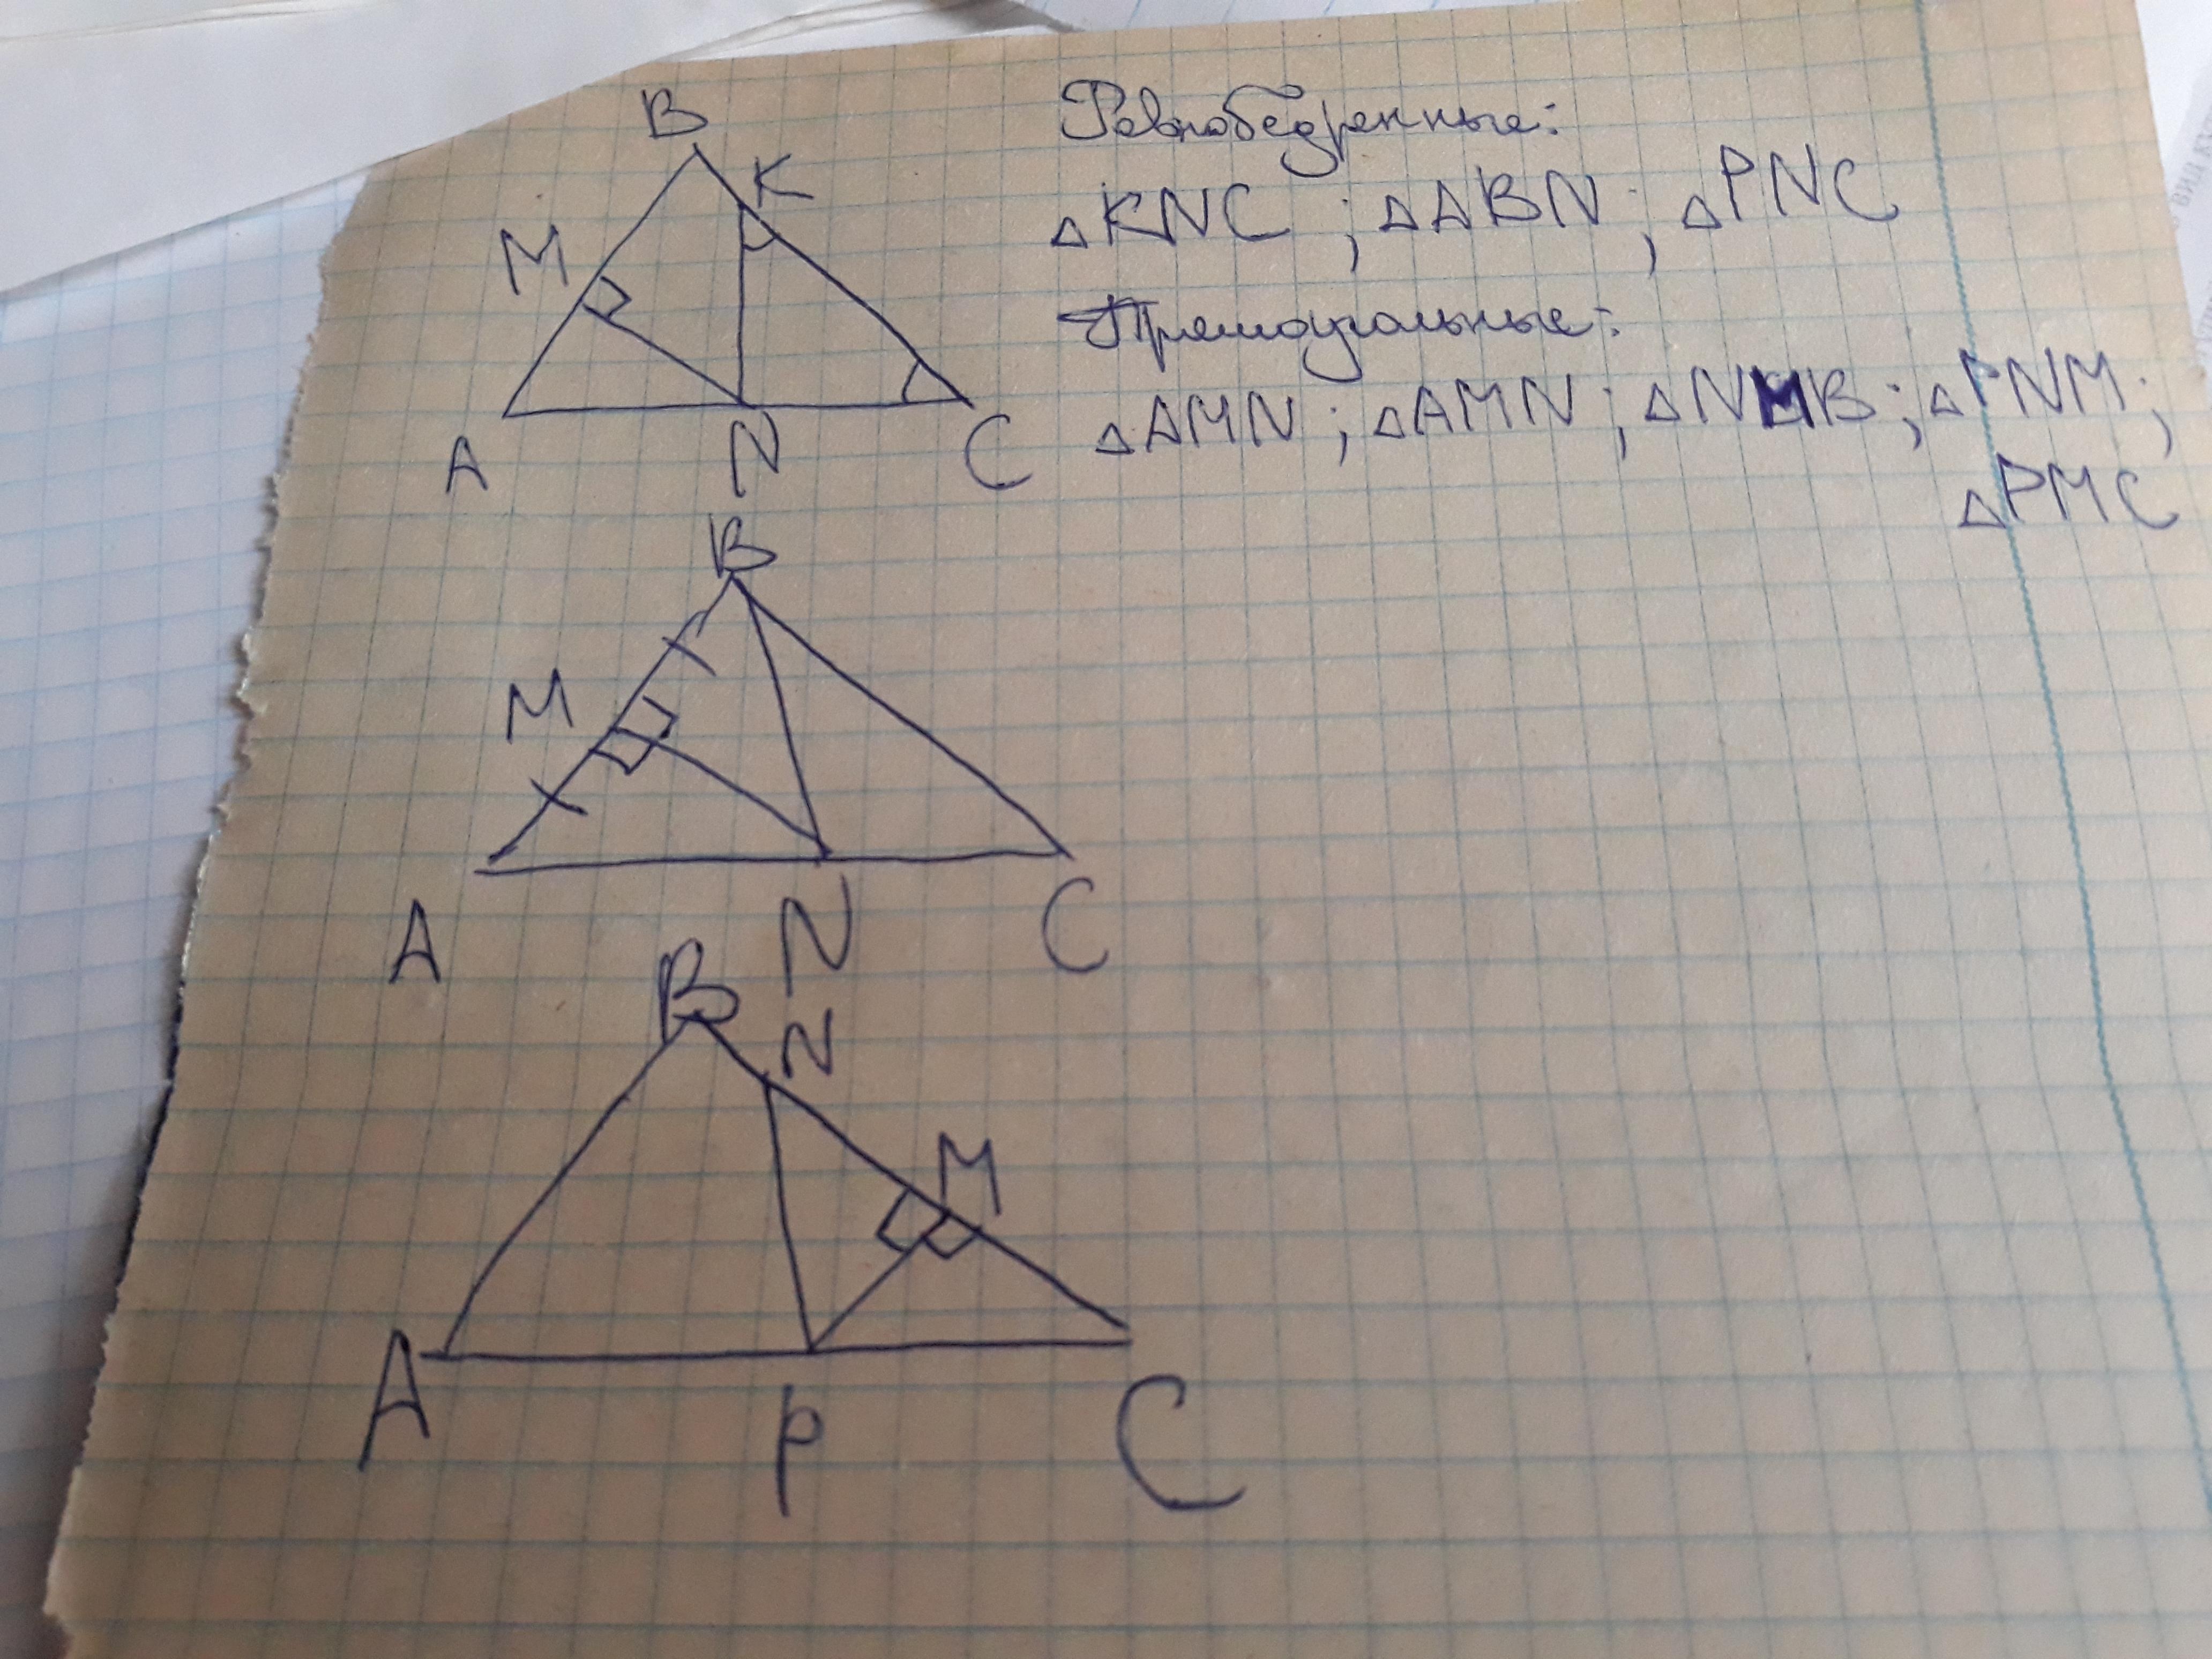 B
K
M
A N C
Равнобедренные:
△KNC ; △ABN ; △PNC
Прямоугольные:
△AMN ; △AMN ; △NMB ; △PNM ;
△PMC
B
M
A N C
B
N
M
A P C